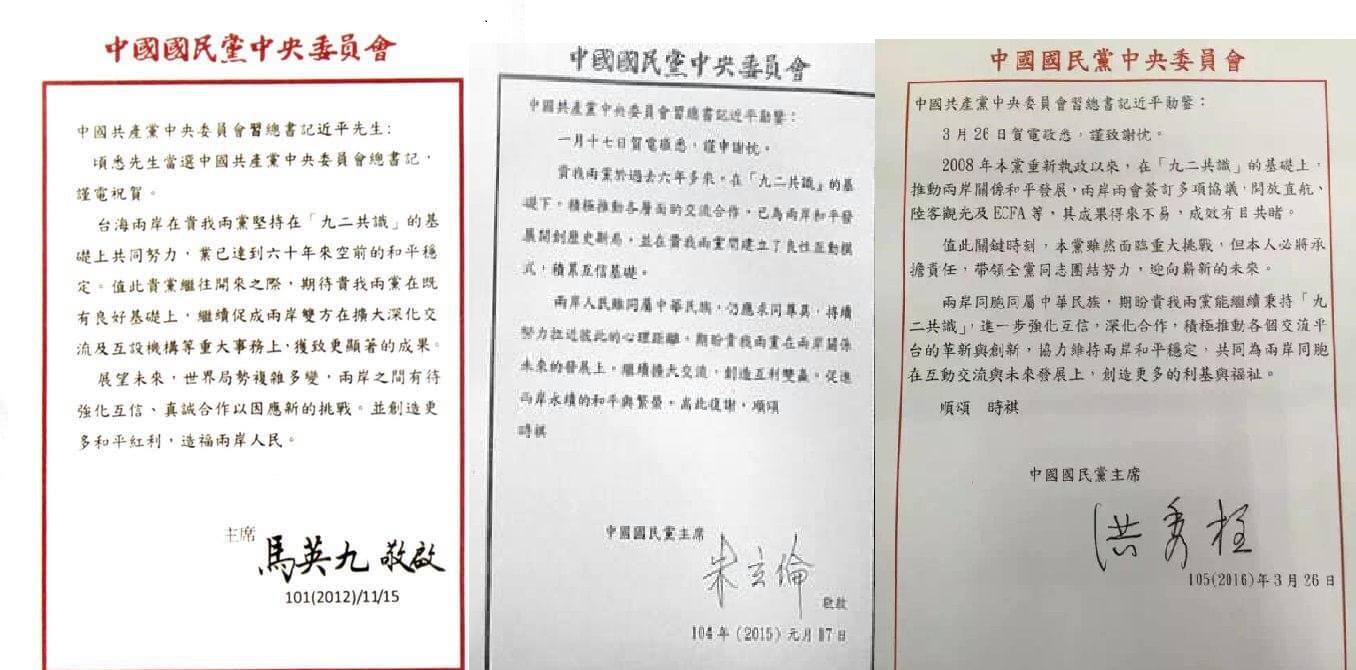 中國國民黨中央委員會
中國共產黨中央委員會習總書記近平先生:
頃悉先生當選中國共產黨中央委員會總書記,
謹電祝賀。
台海兩岸在貴我兩黨堅持在「九二共識」的基
礎上共同努力,業已達到六十年來空前的和平穩
定。值此貴黨繼往開來之際,期待貴我兩黨在既
有良好基礎上,繼續促成兩岸雙方在擴大深化交
流及互設機構等重大事務上,獲致更顯著的成果。
展望未來,世界局勢複雜多變,兩岸之間有待
強化互信、真誠合作以因應新的挑戰。並創造更
多和平紅利,造福兩岸人民。
主席
馬英九 敬啟
101(2012)/11/15
中國國民黨中央委員會
中國共產黨中央委員會習總書記近平勛鑒:
一月十七日賀電敬悉,謹申謝忱。
貴我兩黨於過去六年多來,在「九二共識」的基
礎下,積極推動各層面的交流合作,已為兩岸和平發
展開創歷史新局,並在貴我兩黨間建立了良性互動模
式,積累互信基礎。
兩岸人民雖同屬中華民族,仍應求同尊異,持續
努力拉近彼此的心理距離。期盼貴我兩黨在兩岸關係
未來的發展上,繼續擴大交流,創造互利雙贏。促進
兩岸永續的和平與繁榮。耑此復謝,順頌
時祺
中國國民黨主席
朱立倫
敬啟
104年(2015)元月17日
中國國民黨中央委員會
中國共產黨中央委員會習總書記近平勛鑒:
3月26日賀電敬悉,謹致謝忱。
2008年本黨重新執政以來,在「九二共識」的基礎上,
推動兩岸關係和平發展,兩岸兩會簽訂多項協議,開放直航、
陸客觀光及ECFA等,其成果得來不易,成效有目共睹。
值此關鍵時刻,本黨雖然面臨重大挑戰,但本人必將承
擔責任,帶領全黨同志團結努力,迎向嶄新的未來。
兩岸同胞同屬中華民族,期盼貴我兩黨能繼續秉持「九
二共識」,進一步強化互信,深化合作,積極推動各個交流平
台的革新與創新,協力維持兩岸和平穩定,共同為兩岸同胞
在互動交流與未來發展上,創造更多的利基與福祉。
順頌 時祺
中國國民黨主席
洪秀柱
105(2016)年3月26日